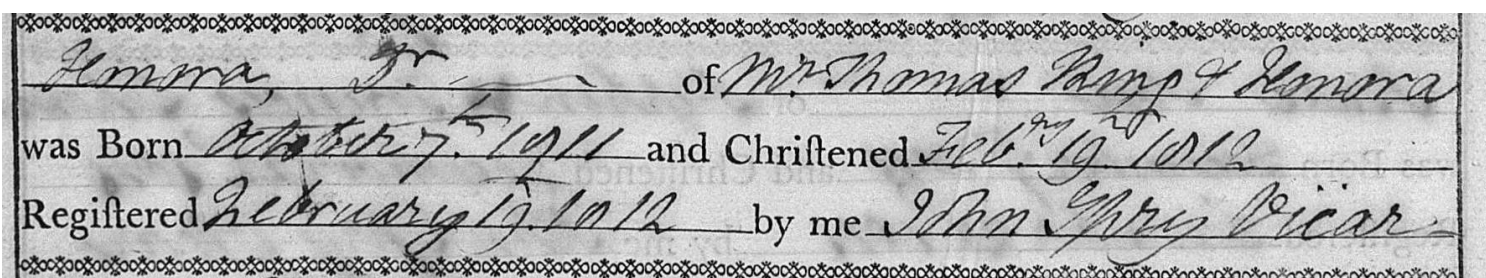 Honora, Dr. of Mr. Thomas King & Honora
was Born October 7th. 1811 and Chriſtened Feby. 19th 1812
Regiſtered February 19. 1812 by me John Spry Vicar